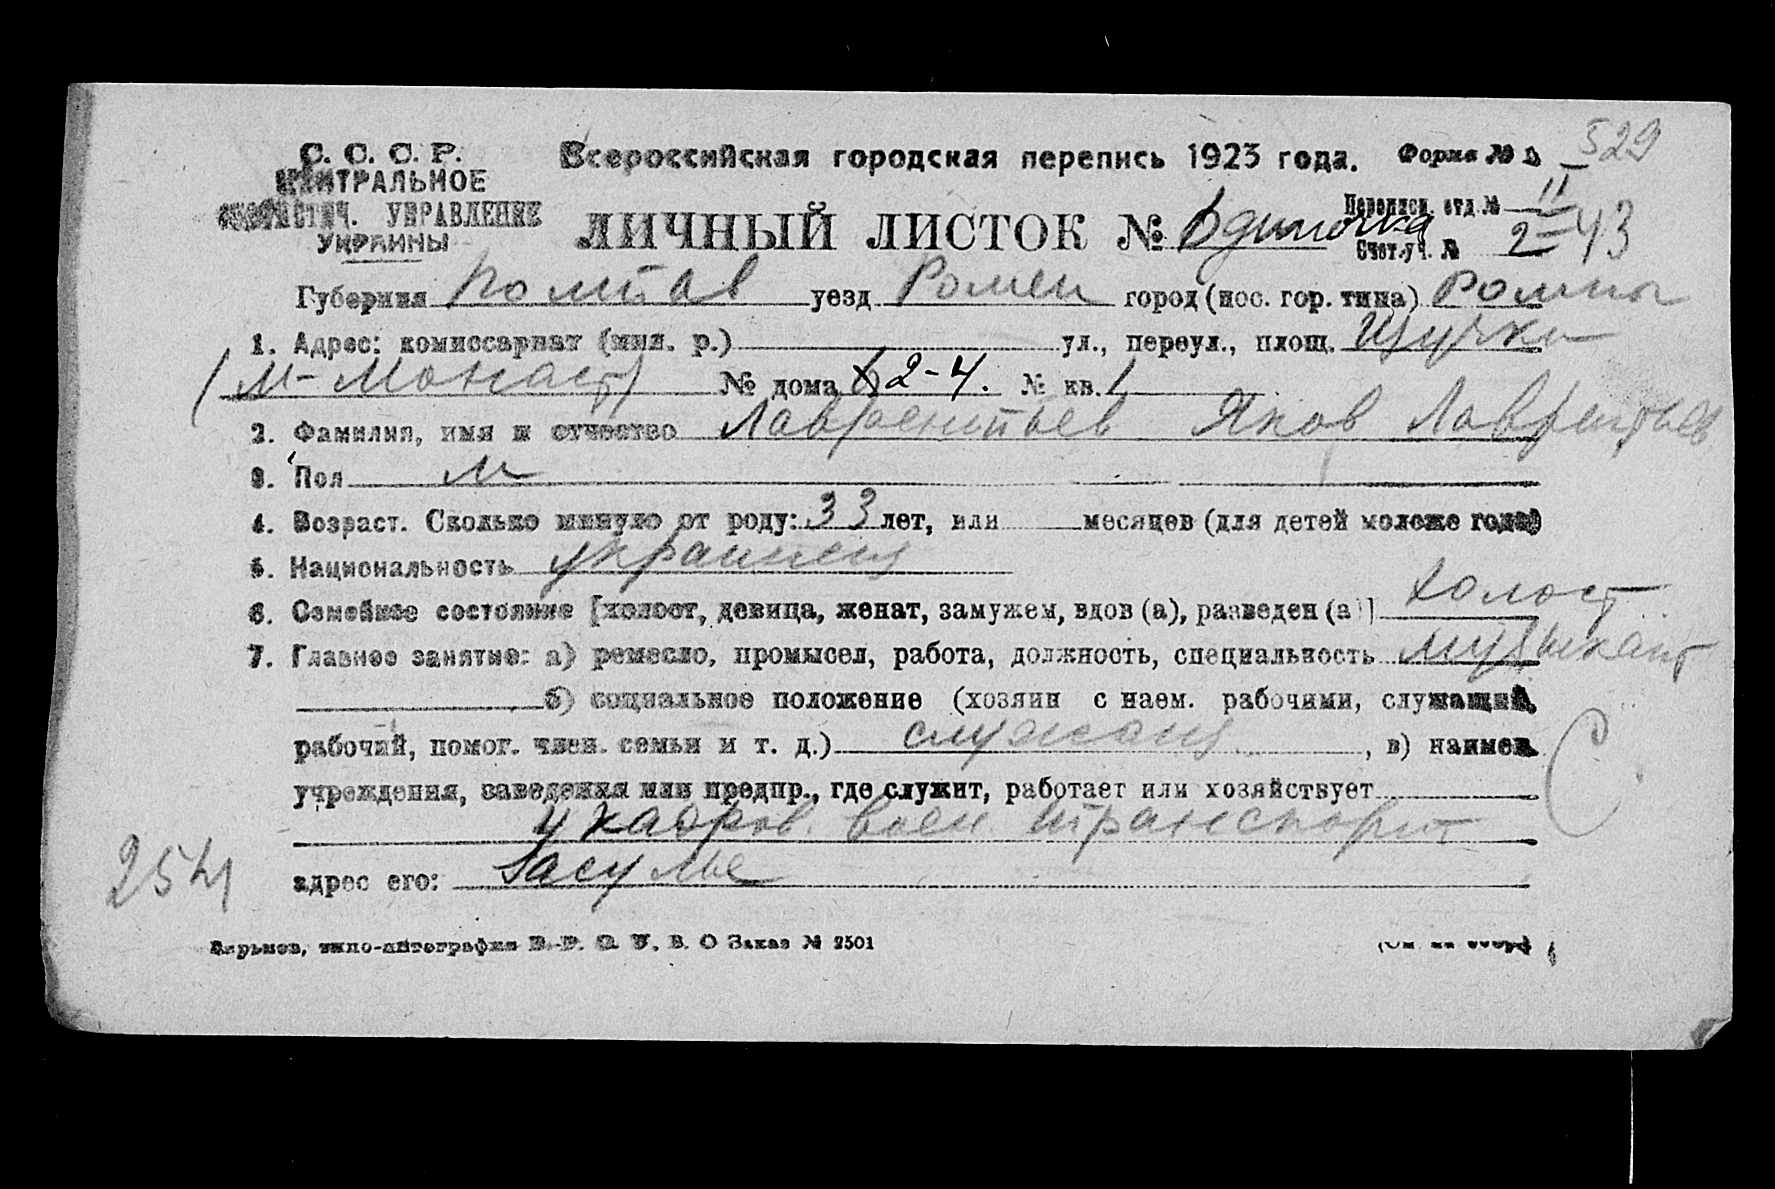 С. С. С. Р.
ЦЕНТРАЛЬНОЕ
СТАТИСТИЧ. УПРАВЛЕНИЕ
УКРАИНЫ
Всероссийская городская перепись 1923 года.
Форма № 529
ЛИЧНЫЙ ЛИСТОК № Одиночка
Переписн. отд. № II
Счет. уч. № 2 - 43
Губерния Полтав уезд Ромен город (пос. гор. типа) Ромны
1. Адрес: комиссариат (мил. р.) ул., переул., площ.
(М-Монаст) № дома 2-4. № кв. 1
2. Фамилия, имя и отчество Лаврентьев Яков Лаврентьев
3. Пол м
4. Возраст. Сколько минуло от роду: 33 лет, или месяцев (для детей моложе года)
5. Национальность украинец
6. Семейное состояние [холост, девица, женат, замужем, вдов (а), разведен (а)] холост
7. Главное занятие: а) ремесло, промысел, работа, должность, специальность музыкант
б) социальное положение (хозяин с наем. рабочими, служащий,
рабочий, помог. член. семьи и т. д.) служащ , в) наимен.
учреждения, заведения или предпр., где служит, работает или хозяйствует
4 кадров. воен. транспорт
С
адрес его: Засулье
254
Харьков, типо-литография В. О Заказ № 2501